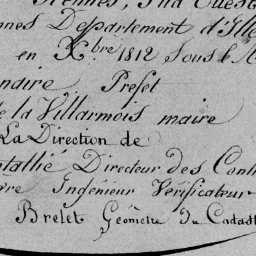 Rennes, Sud Ouest
nnes Département d'Ille
en Xbre 1812 Sous l'A
naire, Préfet
de la Villarmois maire
La Direction de
tallié Directeur des Cont
Ingénieur Vérificateur
Brelet Géomètre du Cadast